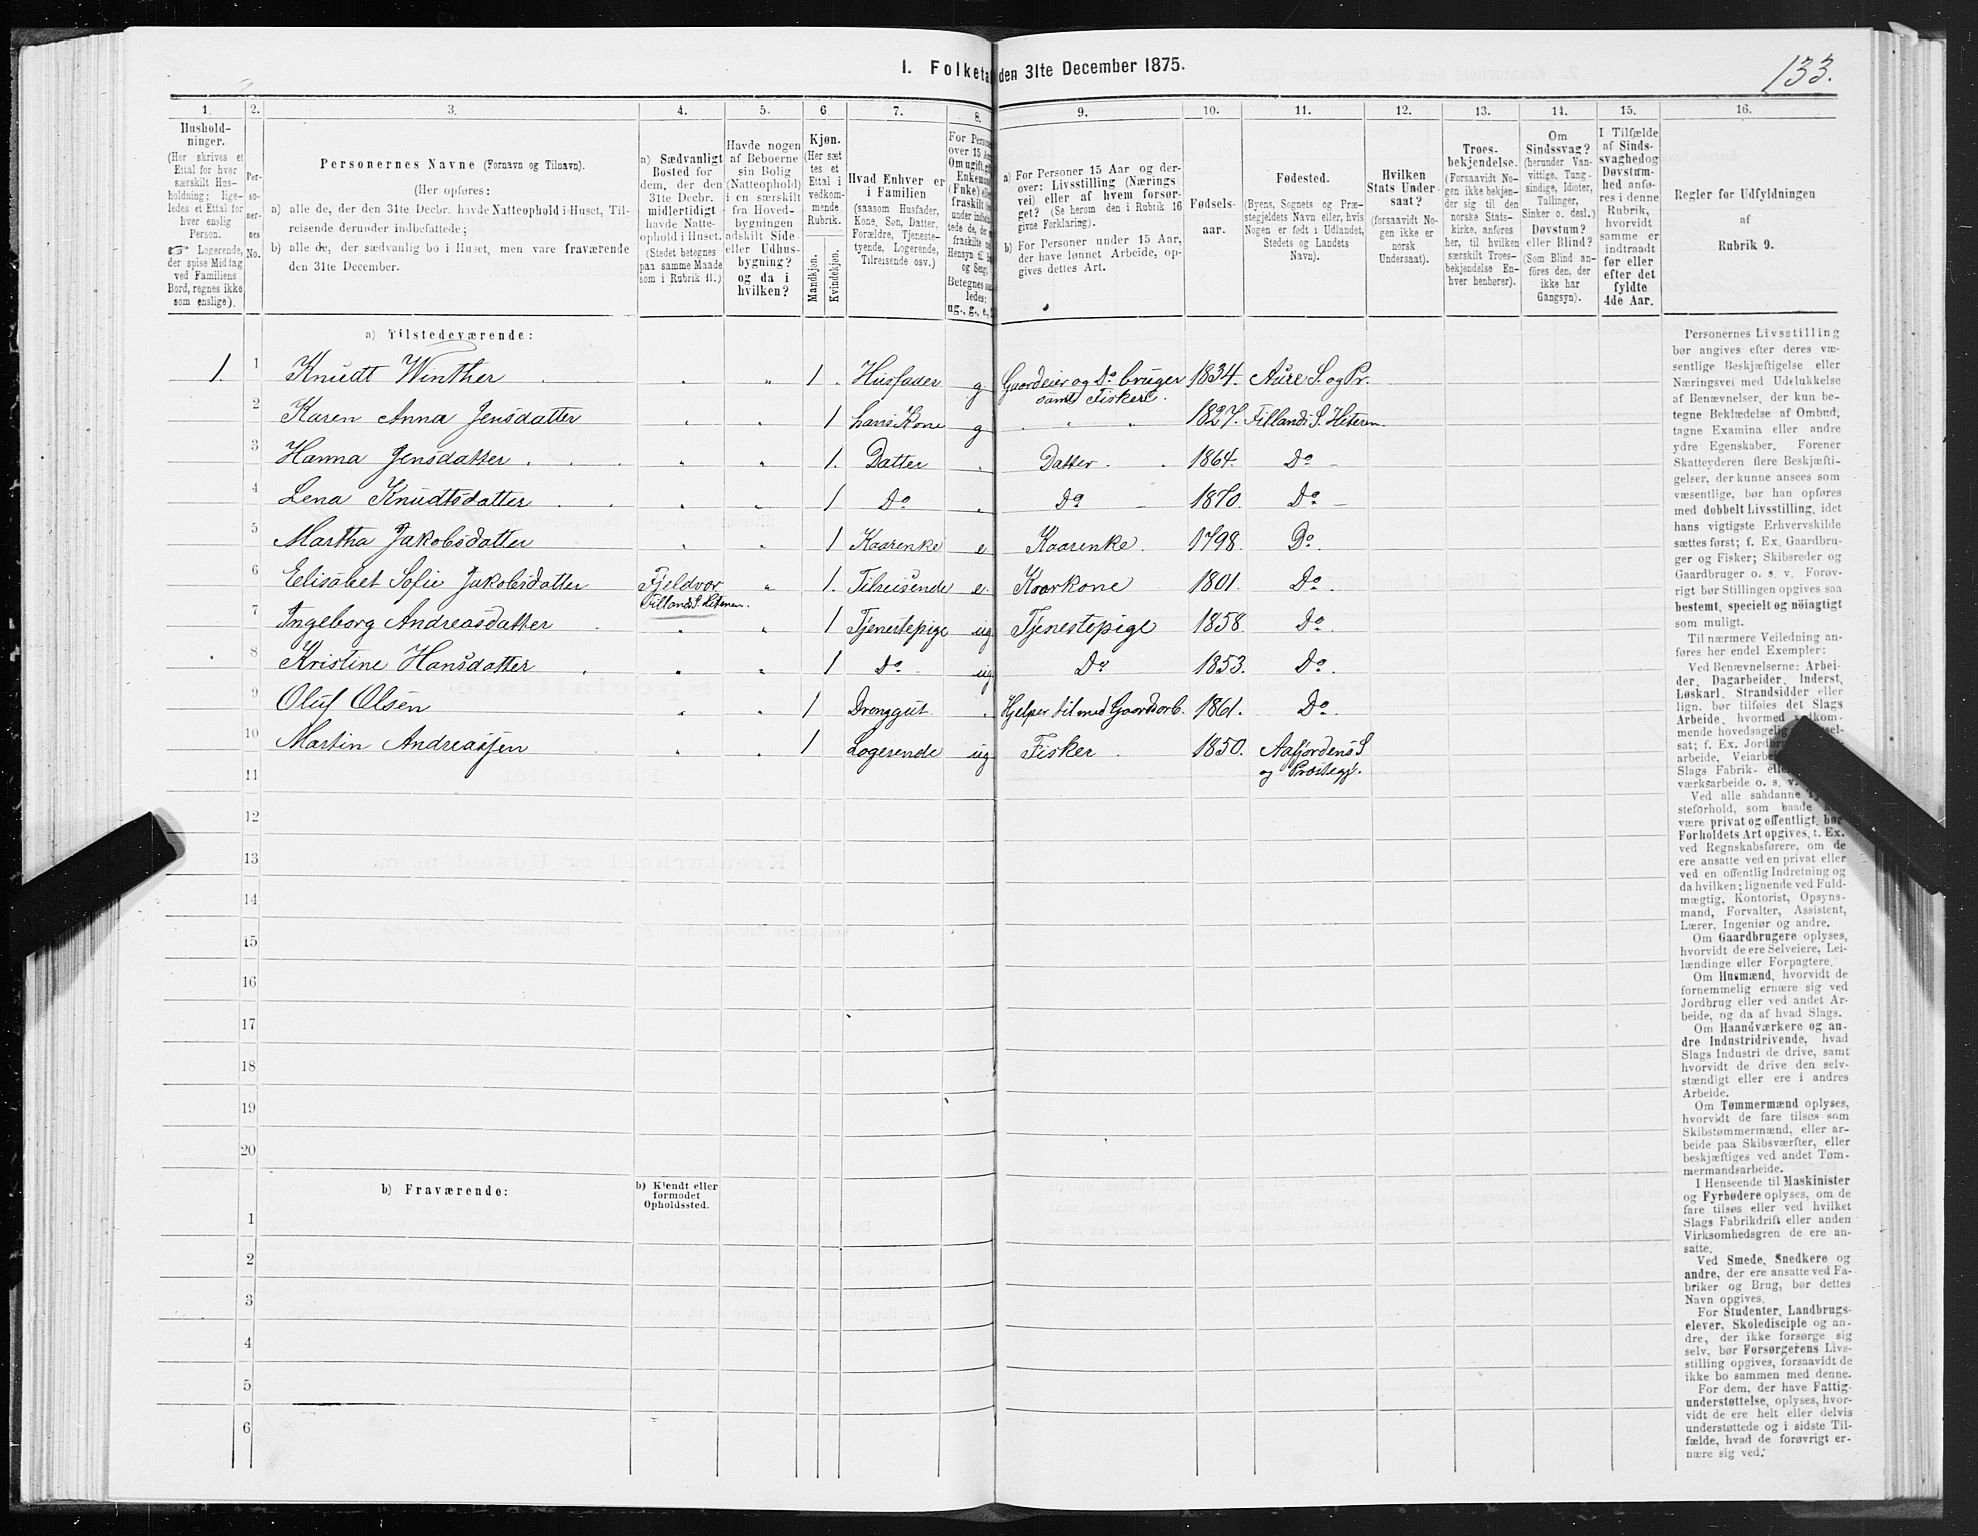 I. Folketæ
den 31te December 1875.
133.
1.
2.
3.
4.
5.
6
7.
8.
9.
10.
11.
12.
13.
14.
15.
16.
Hushold-
ninger.
(Her skrives et
Ettal for hver
særskilt Hus-
holdning; lige-
ledes et Ettal for
hver enslig
Person.
☞ Logerende,
der spise Middag
ved Familiens
Bord, regnes ikke
som enslige).
Per-
so-
ner-
nes
No.
Personernes Navne (Fornavn og Tilnavn).
(Her opføres:
a) alle de, der den 31te Decbr. havde Natteophold i Huset, Til-
reisende derunder indbefattede;
b) alle de, der sædvanlig bo i Huset, men vare fraværende
den 31te December.
a) Sædvanligt
Bosted for
dem, der den
31te Decbr.
midlertidigt
havde Natte-
ophold i Huset.
(Stedet betegnes
paa samme Maade
som i Rubrik 11.)
Havde nogen
af Beboerne
sin Bolig
(Natteophold)
i en særskilt
fra Hoved-
bygningen
adskilt Side-
eller Udhus-
bygning?
og da i
hvilken?
Kjøn.
(Her sæt
tes et
Ettal i
vedkom-
mende
Rubrik.
Mandkjøn.
Kvindekjøn.
Hvad Enhver er
i Familien
(saasom Husfader,
Kone, Søn, Datter,
Forældre, Tjeneste-
tyende, Logerende,
Tilreisende osv.)
a) For Personer 15 Aar og der-
over: Livsstilling (Nærings
vei) eller af hvem forsør-
get? (Se herom den i Rubrik 16
givne Forklaring).
b) For Personer under 15 Aar,
der have lønnet Arbeide, op-
gives dettes Art.
Fødsels-
aar.
Fødested.
(Byens, Sognets og Præ-
stegjeldets Navn eller, hvis
Nogen er født i Udlandet,
Stedets og Landets
Navn).
Hvilken
Stats Under-
saat?
(forsaavidt No-
gen ikke er
norsk
Undersaat).
Troes-
bekjendelse.
(Forsaavidt No-
gen ikke bekjen-
der sig til den
norske Stats-
kirke, anføres
her, til hvilken
særskilt Troes-
bekjendelse En-
hver henhører).
Om
Sindssvag?
(herunder Van-
vittige, Tung-
sindige, Idioter,
Tullinger,
Sinker o. desl.)
Døvstum?
eller Blind?
(Som Blind an-
føres den, der
ikke har
Gangsyn).
I Tilfælde
af Sinds-
svaghed og
Døvstum-
hed anfø-
res i denne
Rubrik,
hvorvidt
samme er
indtraadt
før eller
efter det
fyldte
4de Aar.
Regler for Udfyldningen
af
Rubrik 9.
a) Tilstedeværende:
1. 1 Knudt Winther 1 Husfader g Gaardeier og Do bruger 1834. Aure S. og Pr.
samt Fisker.
2 Karen Anna Jensdatter 1 hans Kone g 1827. Fillands S. Hiteren
3 Hanna Jensdatter 1. Datter Datter 1864. Do
4 Lena Knudtsdatter 1 Do Do 1870. Do
5 Martha Jakobsdatter 1 Kaarenke e Kaarenke. 1798. Do
6 Elisabet Sofie Jakobsdatter Fjeldvær 1. Tilreisende e. Kaarkone 1801. Do
Fillands S. Hiteren.
7 Ingeborg Andreasdatter 1 Tjenestepige ug Tjenestepige 1858. Do
8 Kristine Hansdatter 1 Do ug Do 1853. Do
9 Oluf Olsen 1 Drenggut Hjelper til med Gaardsarb. 1861. Do
10 Martin Andreassen 1 Logerende ug Fisker 1850. Aafjordens S
og Præstegj.
11
12
13
14
15
16
17
18
19
20
b) Fraværende:
b) Kjendt eller
formodet
Opholdssted.
1
2
3
4
5
6
Personernes Livsstilling
bør angives efter deres væ-
sentlige Beskjæftigelse eller
Næringsvei med Udelukkelse
af Benævnelser, der kun be-
tegne Beklædelse af Ombud,
tagne Examina eller andre
ydre Egenskaber. Forener
Skatteyderen flere Beskjæfti-
gelser, der kunne ansees som
væsentlige, bør han opføres
med dobbelt Livsstilling, idet
hans vigtigste Erhvervskilde
sættes først; f. Ex. Gaardbru-
ger og Fisker; Skibsreder og
Gaardbruger o. s. v. Forøv-
rigt bør Stillingen opgives saa
bestemt, specielt og nöiagtigt
som muligt.
Til nærmere Veiledning an-
føres her endel Exempler:
Ved Benævnelserne: Arbei-
der, Dagarbeider, Inderst,
Løskarl, Strandsidder eller
lign. bør tilføies det Slags
Arbeide, hvormed
mende hovedsagelig
sat; f. Ex.
arbeide,
Slags Fabrik-
værksarbeide o. s. v.
Ved alle saadanne
steforhold, som baade
være privat og offentligt, bør
Forholdets Art opgives, t. Ex.
ved Regnskabsførere, om de
ere ansatte ved en privat eller
ved en offentlig Indretning og
da hvilken; lignende ved Fuld-
mægtig, Kontorist, Opsyns-
mand, Forvalter, Assistent,
Lærer, Ingeniør og andre.
Om Gaardbrugere oplyses,
hvorvidt de ere Selveiere, Lei-
lændinge eller Forpagtere.
Om Husmænd, hvorvidt de
fornemmelig ernære sig ved
Jordbrug eller ved andet Ar-
beide, og da af hvad Slags.
Om Haandværkere og an-
dre Industridrivende, hvad
Slags Industri de drive, samt
hvorvidt de drive den selv-
stændigt eller ere i andres
Arbeide.
Om Tømmermænd oplyses,
hvorvidt de fare tilsøs som
Skibstømmermænd, eller ar-
beide paa Skibsværfter, eller
beskjæftiges ved andet Tøm-
mermandsarbeide.
I Henseende til Maskinister
og Fyrbødere oplyses, om de
fare tilsøs eller ved hvilket
Slags Fabrikdrift eller anden
Virksomhedsgren de ere an-
satte.
Ved Smede, Snedkere og
andre, der ere ansatte ved Fa-
briker og Brug, bør dettes
Navn opgives.
For Studenter, Landbrugs-
elever, Skoledisciple og an-
dre, der ikke forsørge sig
selv, bør Forsørgerens Livs-
stilling opgives, forsaavidt de
ikke bo sammen med denne.
For dem, der have Fattig-
understøttelse, oplyses, hvor-
vidt de ere helt eller delvis
understøttede og i sidste Til-
fælde, hvad de forøvrigt er-
nære sig ved.